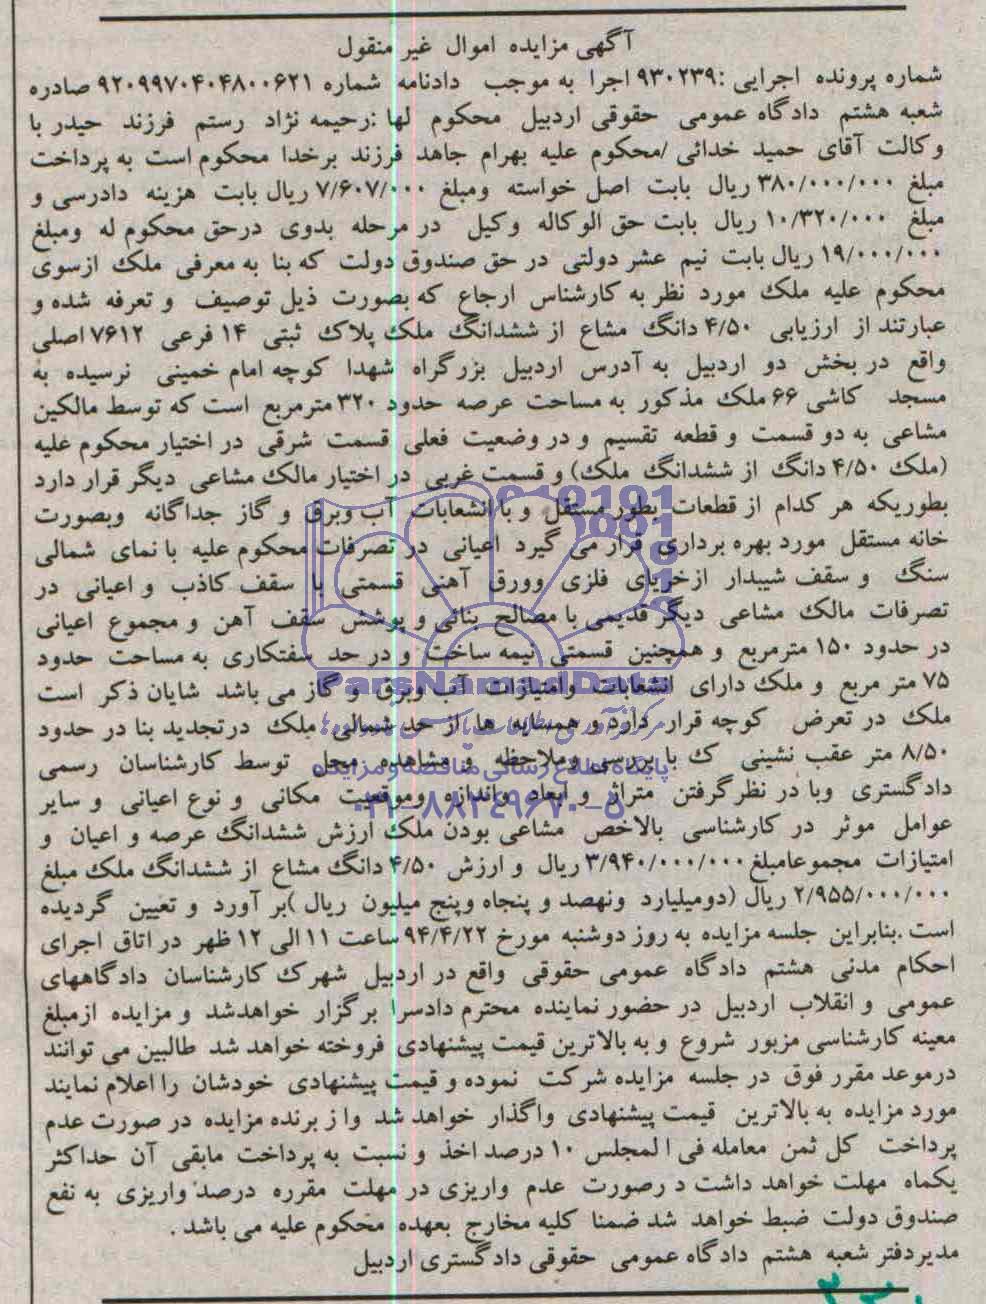 آگهی مزایده اموال غیر منقول
شماره پرونده اجرایی :۹۳۰۲۳۹ اجرا به موجب دادنامه شماره ۹۲۰۹۹۷۰۴۰۴۸۰۰۶۲۱ صادره
شعبه هشتم دادگاه عمومی حقوقی اردبیل محکوم لها :رحیمه نژاد رستم فرزند حیدر با
وکالت آقای حمید خدائی /محکوم علیه بهرام جاهد فرزند برخدا محکوم است به پرداخت
مبلغ ۳۸۰/۰۰۰/۰۰۰ ریال بابت اصل خواسته ومبلغ ۷/۶۰۷/۰۰۰ ریال بابت هزینه دادرسی و
مبلغ ۱۰/۳۲۰/۰۰۰ ریال بابت حق الوکاله وکیل در مرحله بدوی درحق محکوم له ومبلغ
۱۹/۰۰۰/۰۰۰ ریال بابت نیم عشر دولتی در حق صندوق دولت که بنا به معرفی ملک ازسوی
محکوم علیه ملک مورد نظر به کارشناس ارجاع که بصورت ذیل توصیف و تعرفه شده و
عبارتند از ارزیابی ۴/۵۰ دانگ مشاع از ششدانگ ملک پلاک ثبتی ۱۴ فرعی ۷۶۱۲ اصلی
واقع در بخش دو اردبیل به آدرس اردبیل بزرگراه شهدا کوچه امام خمینی نرسیده به
مسجد کاشی ۶۶ ملک مذکور به مساحت عرصه حدود ۳۲۰ مترمربع است که توسط مالکین
مشاعی به دو قسمت و قطعه تقسیم و در وضعیت فعلی قسمت شرقی در اختیار محکوم علیه
(ملک ۴/۵۰ دانگ از ششدانگ ملک) و قسمت غربی در اختیار مالک مشاعی دیگر قرار دارد
بطوریکه هر کدام از قطعات بطور مستقل و با انشعابات آب وبرق و گاز جداگانه وبصورت
خانه مستقل مورد بهره برداری قرار می گیرد اعیانی در تصرفات محکوم علیه با نمای شمالی
سنگ و سقف شیبدار ازخرپای فلزی وورق آهنی قسمتی با سقف کاذب و اعیانی در
تصرفات مالک مشاعی دیگر قدیمی با مصالح بنائی و پوشش سقف آهن و مجموع اعیانی
در حدود ۱۵۰ مترمربع و همچنین قسمتی نیمه ساخت و در حد سفتکاری به مساحت حدود
۷۵ متر مربع و ملک دارای انشعابات وامتیازات آب وبرق و گاز می باشد شایان ذکر است
ملک در تعرض کوچه قرار دارد و همسایه ها از حد شمالی ملک درتجدید بنا در حدود
۸/۵۰ متر عقب نشینی ک با بررسی وملاحظه و مشاهده محل توسط کارشناسان رسمی
دادگستری وبا در نظرگرفتن متراژ و ابعاد واندازه وموقعیت مکانی و نوع اعیانی و سایر
عوامل موثر در کارشناسی بالاخص مشاعی بودن ملک ارزش ششدانگ عرصه و اعیان و
امتیازات مجموعامبلغ ۳/۹۴۰/۰۰۰/۰۰۰ ریال و ارزش ۴/۵۰ دانگ مشاع از ششدانگ ملک مبلغ
۲/۹۵۵/۰۰۰/۰۰۰ ریال (دومیلیارد ونهصد و پنجاه وپنج میلیون ریال )بر آورد و تعیین گردیده
است .بنابراین جلسه مزایده به روز دوشنبه مورخ ۹۴/۴/۲۲ ساعت ۱۱ الی ۱۲ ظهر در اتاق اجرای
احکام مدنی هشتم دادگاه عمومی حقوقی واقع در اردبیل شهرک کارشناسان دادگاههای
عمومی و انقلاب اردبیل در حضور نماینده محترم دادسرا برگزار خواهدشد و مزایده ازمبلغ
معینه کارشناسی مزبور شروع و به بالاترین قیمت پیشنهادی فروخته خواهد شد طالبین می توانند
درموعد مقرر فوق در جلسه مزایده شرکت نموده و قیمت پیشنهادی خودشان را اعلام نمایند
مورد مزایده به بالاترین قیمت پیشنهادی واگذار خواهد شد وا ز برنده مزایده در صورت عدم
پرداخت کل ثمن معامله فی ا لمجلس ۱۰ درصد اخذ و نسبت به پرداخت مابقی آن حداکثر
یکماه مهلت خواهد داشت د رصورت عدم واریزی در مهلت مقرره درصد واریزی به نفع
صندوق دولت ضبط خواهد شد ضمنا کلیه مخارج بعهده محکوم علیه می باشد .
مدیردفتر شعبه هشتم دادگاه عمومی حقوقی دادگستری اردبیل
ParsNamadData
پایگاه اطلاع رسانی مناقصه و مزایده
۰۲۱-۸۸۳۴۹۶۷۰-۵